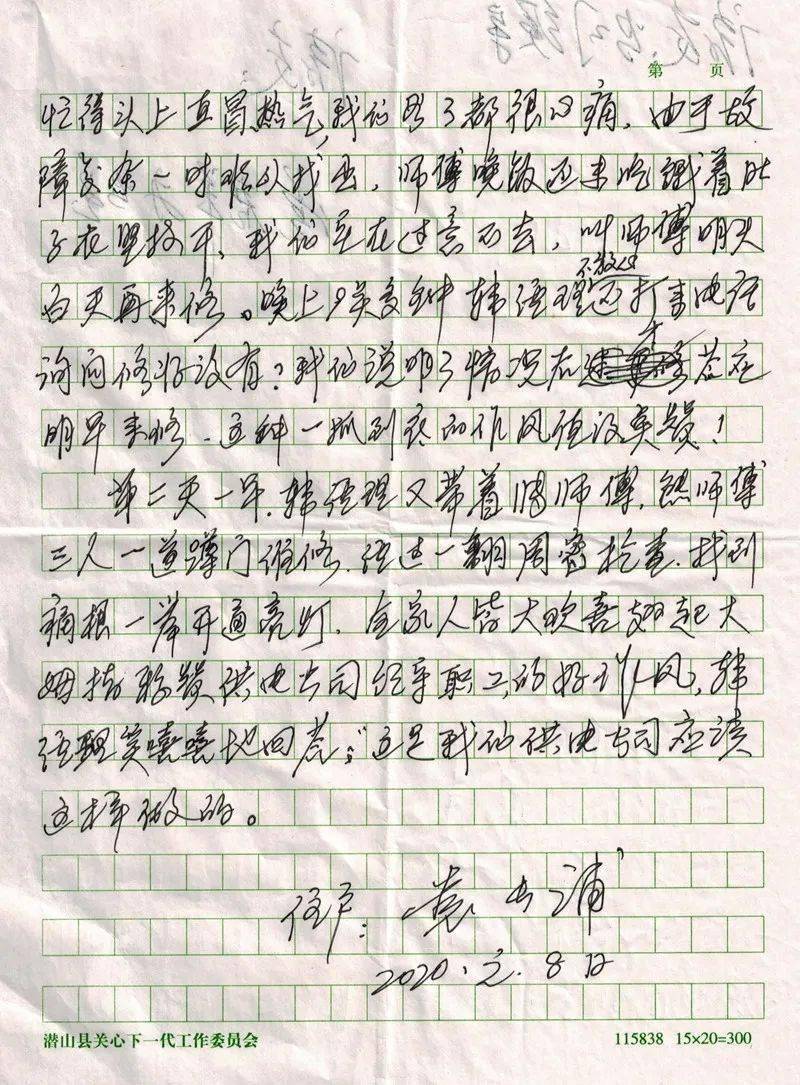 第 页
忙得头上直冒热气,我们看了都很心痛,由于故
障复杂一时难以找出,师傅晚饭还未吃饿着肚
子衣里拧干,我们实在过意不去,叫师傅明天
白天再来修。晚上9点多钟韩经理不放心还打来电话
询问修好没有?我们说明了情况后才答应
明早来修.这种一抓到底的作风值得负赞!
第二天一早,韩经理又带着腾师傅,熊师傅
三人一道蹲门维修.经过一翻周密检查.找到
病根一举开通亮灯,全家人皆大欢喜翘起大
姆指称赞供电公司领导职工的好作风,韩
经理笑嘻嘻地回答:"这是我们供电公司应该
这样做的。
住户:黄 浦
2020.元.8日
潜山县关心下一代工作委员会
115838 15×20=300